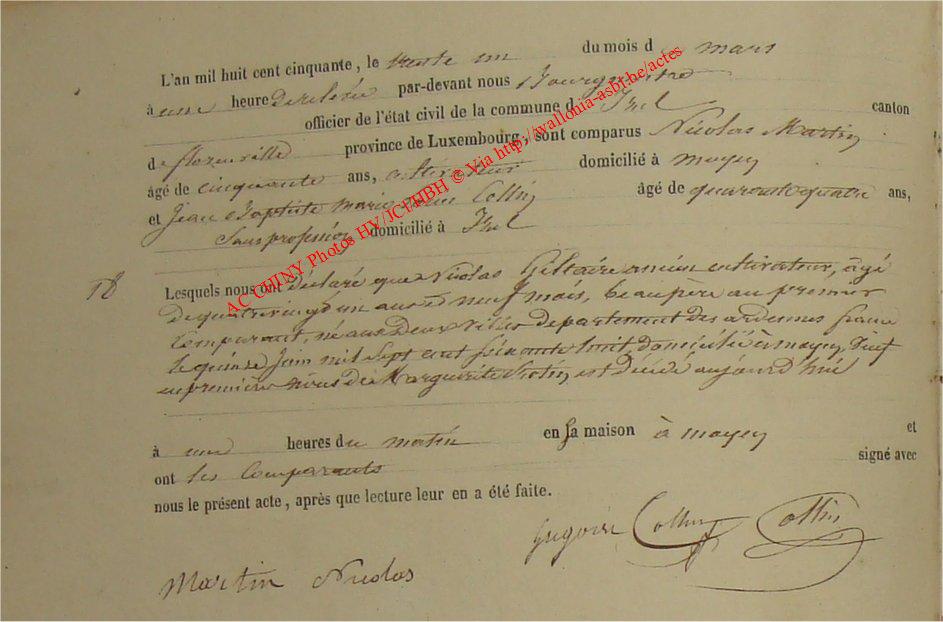 L'an mil huit cent cinquante, le trente un du mois d mars
à une heure de relevée par-devant nous Bourgmestre
officier de l'état civil de la commune d'Izel canton
de florenville province de Luxembourg, sont comparus Nicolas Martin
âgé de cinquante ans, cultivateur domicilié à moyen
et Jean Baptiste Marie Collin âgé de quarante quatre ans,
sans profession domicilié à Izel
18 Lesquels nous ont déclaré que Nicolas Gillaire ancien cultivateur, âgé
de quatrevingt un ans et neuf mois, beaupère au premier
Comparant, né aux Deux Villes departement des ardennes france
le quinze Juin mil Sept cent soixante huit domicilié à moyen, veuf
en premières noces de Marguerite est décédé aujourd'hui
à une heures du matin en sa maison à moyen et
ont les comparants signé avec
nous le présent acte, après que lecture leur en a été faite.
Grégoire Collin Collin
Martin Nicolas
AC CHINY Photos HY/JCH/HBH © Via http://wallonia-asbl.be/actes